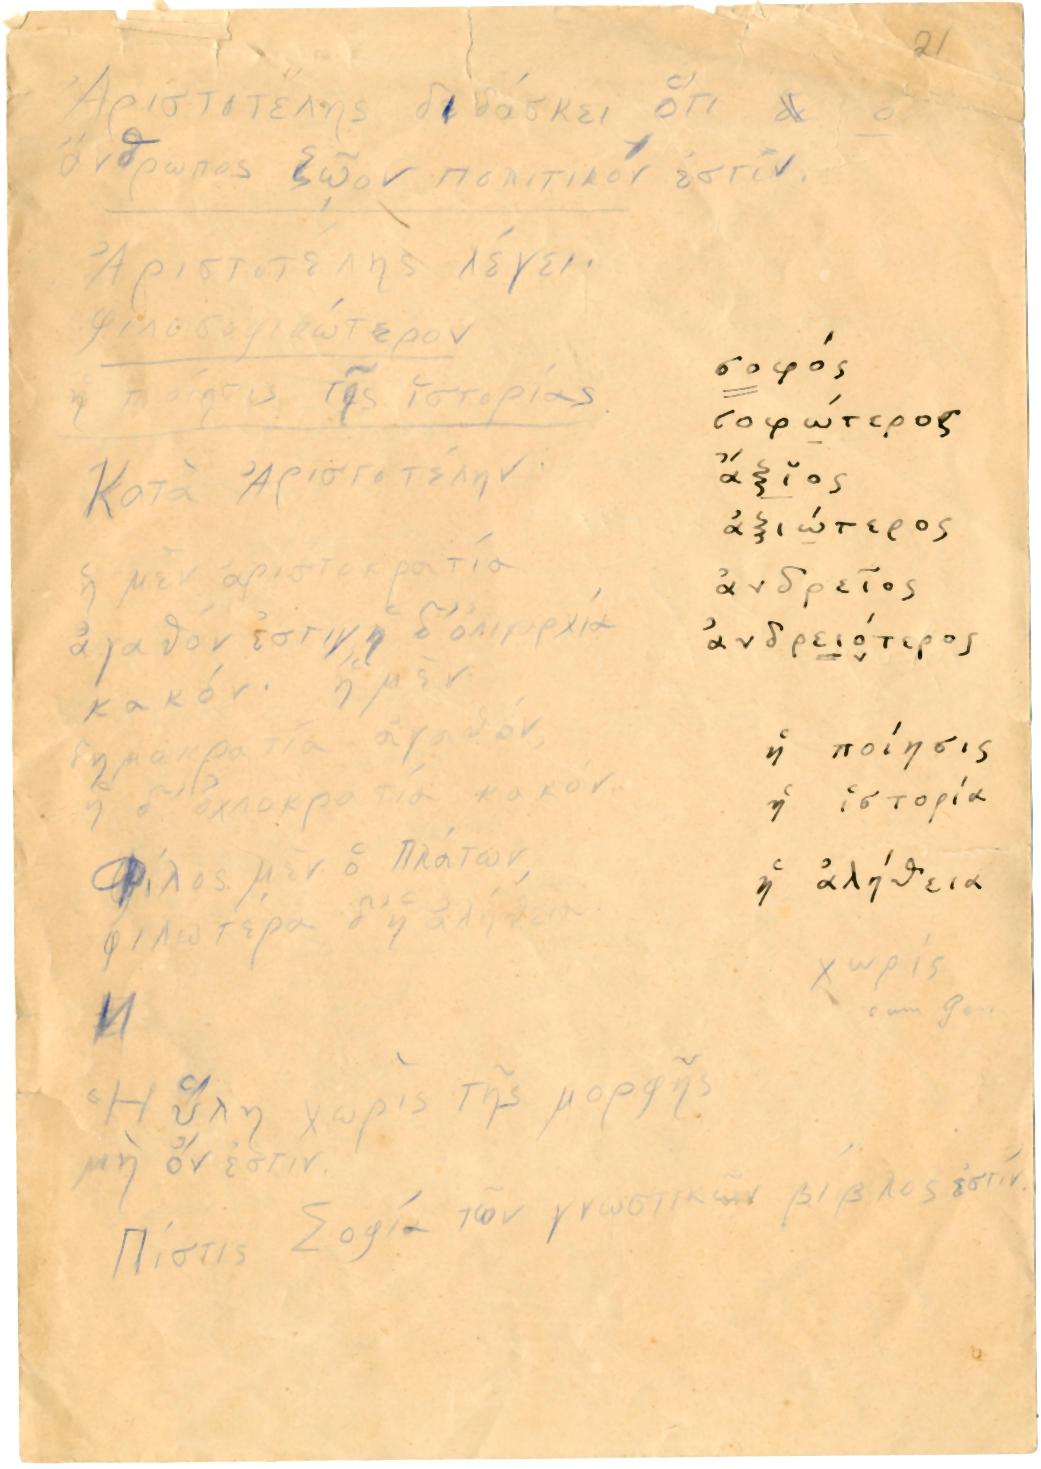 21
Ἀριστοτέλης διδάσκει ὅτι ὁ
ἄνθρωπος ζῷον πολιτικόν ἐστίν.
Ἀριστοτέλης λέγει·
φιλοσοφικώτερον
ἡ ποίησις τῆς ἱστορίας
Κατὰ Ἀριστοτέλην·
ἡ μὲν ἀριστοκρατία
ἀγαθόν ἐστιν, ἡ δ' ὀλιγαρχία
κακόν. ἡ μὲν
δημοκρατία ἀγαθόν,
ἡ δ' ὀχλοκρατία κακόν.
Φίλος μὲν ὁ Πλάτων,
φιλωτέρα δ' ἡ ἀλήθεια.
Ἡ ὕλη χωρὶς τῆς μορφῆς
μὴ ὄν ἐστιν.
Πίστις Σοφία τῶν γνωστικῶν βίβλος ἐστίν.
σοφός
σοφώτερος
ἄξιος
ἀξιώτερος
ἀνδρεῖος
ἀνδρειότερος
ἡ ποίησις
ἡ ἱστορία
ἡ ἀλήθεια
χωρίς
cum Gen